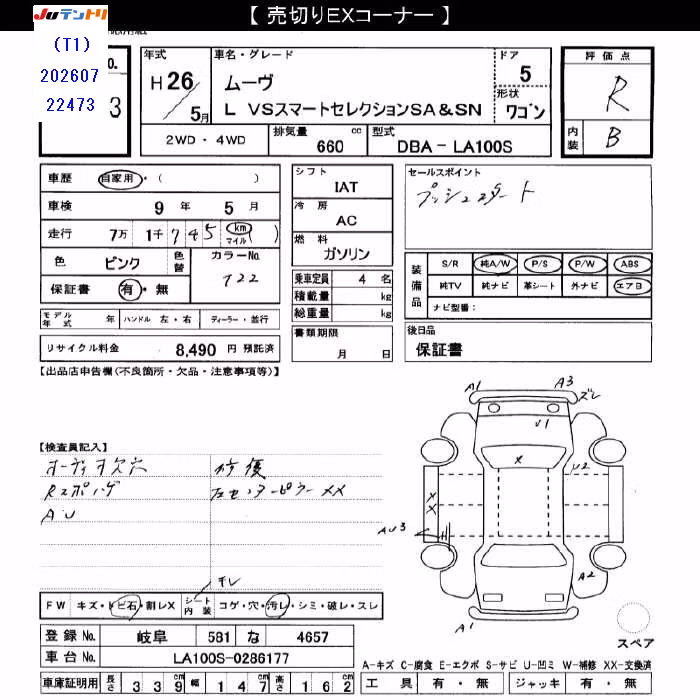 【 売切りEXコーナー 】
JUテントリ
(T1)
202607
22473
No.
3
年式
H 26
5月
車名・グレード
ムーヴ
L VSスマートセレクションSA&SN
ドア
5
形状
ワゴン
評価点
R
内装
B
2WD ・ 4WD
排気量 660 cc
型式 DBA - LA100S
車歴 自家用・( )
車検 9 年 5 月
走行 7万 1千 745 km マイル )
色 ピンク 色替
カラーNo. T22
保証書 有・無
モデル年式 年
ハンドル 左・右
ディーラー・並行
リサイクル料金 8,490 円 預託済
シフト
IAT
冷房
AC
燃料
ガソリン
乗車定員 4 名
積載量 kg
総重量 kg
書類期限
月 日
セールスポイント
プッシュスタート
装備品
S/R 純A/W P/S P/W ABS
純TV 純ナビ 革シート 外ナビ エアB
ナビ型番:
後日品
保証書
【出品店申告欄(不良箇所・欠品・注意事項等)】
【検査員記入】
オーディオ欠穴
修復
Rスポハゲ
左センターピラーXX
AU
キレ
FW キズ・トビ石・割レX
シート内装 コゲ・穴・汚レ・シミ・破レ・スレ
登録No. 岐阜 581 な 4657
車台No. LA100S-0286177
車庫証明用 長さ 339cm 幅 147cm 高さ 162cm
A1
A3
ズレ
U1
X
U2
X
X
AU3
A2
A1
スペア
A-キズ C-腐食 E-エクボ S-サビ U-凹ミ W-補修 XX-交換済
工具 有・無 ジャッキ 有・無